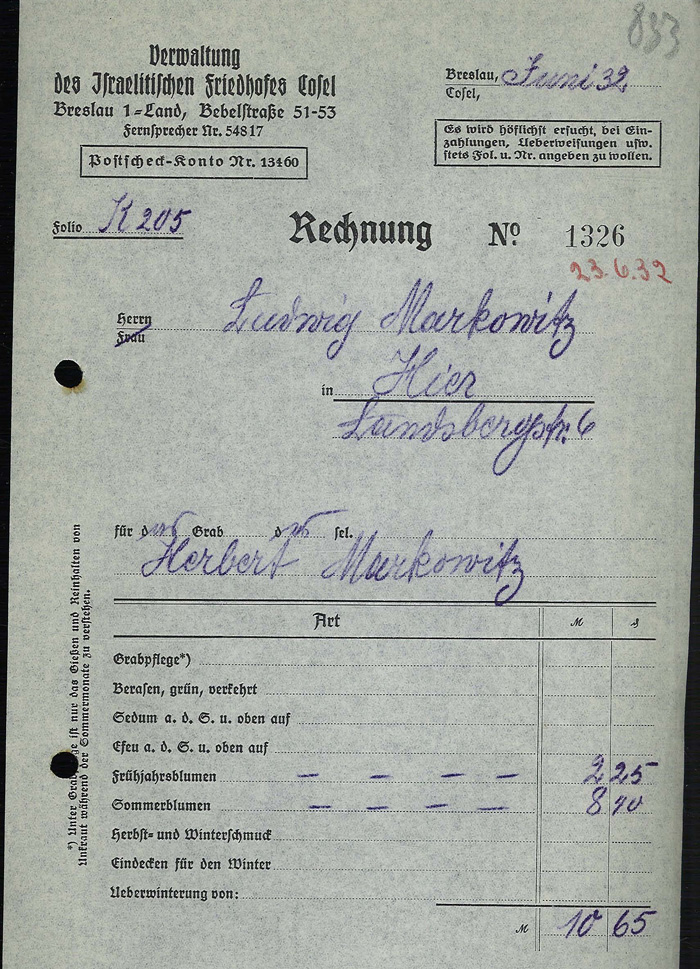 833
Verwaltung
des Israelitischen Friedhofes Cosel
Breslau 1=Land, Bebelstraße 51-53
Fernsprecher Nr. 54817
Postscheck-Konto Nr. 13460
Breslau, Juni 32.
Cosel,
Es wird höflichst ersucht, bei Ein-
zahlungen, Ueberweisungen usw.
stets Fol. u. Nr. angeben zu wollen.
Folio K 205
Rechnung No 1326
23.6.32
Herrn
Frau
Ludwig Markowitz
in Hier
Landsbergstr. 6
für das Grab des sel.
Herbert Markowitz
Art M ₰
Grabpflege*)
Berasen, grün, verkehrt
Sedum a. d. S. u. oben auf
Efeu a. d. S. u. oben auf
Frühjahrsblumen — — — — 2 25
Sommerblumen — — — — 8 40
Herbst= und Winterschmuck
Eindecken für den Winter
Ueberwinterung von:
M 10 65
*) Unter Grab ge ist nur das Gießen und Reinhalten von
Unkraut während der Sommermonate zu verstehen.